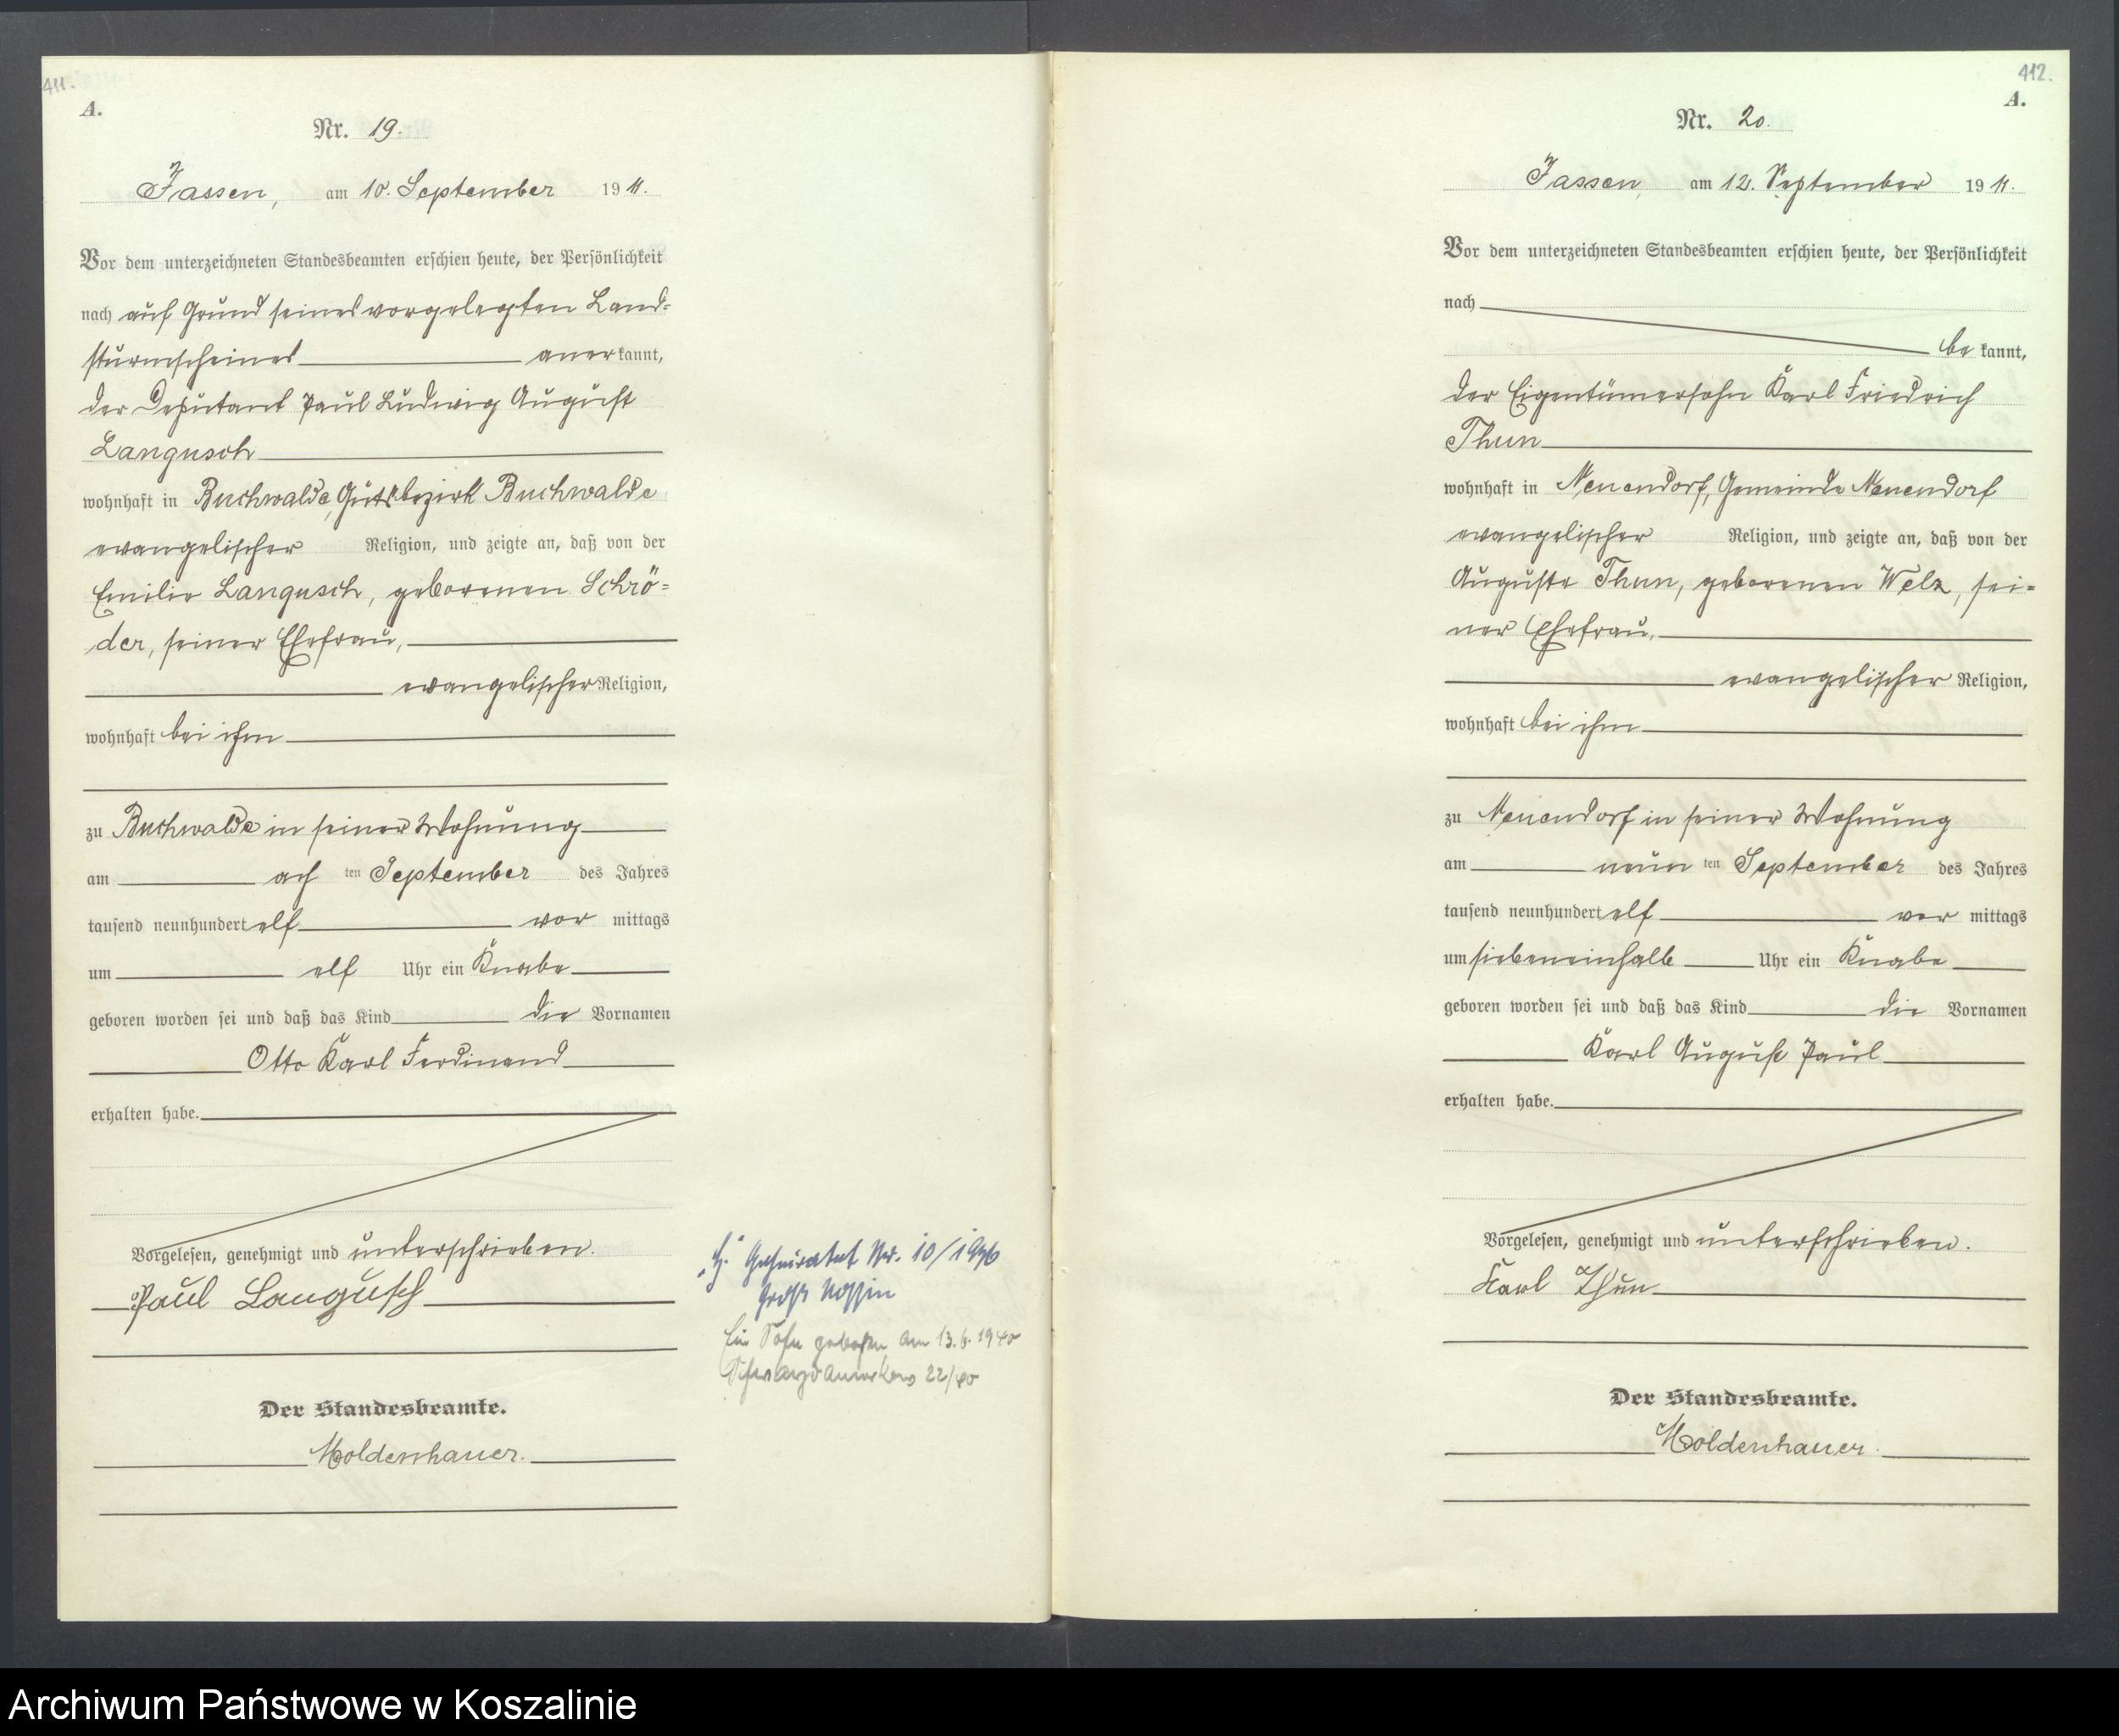 411.
A.
Nr. 19.
Jassen, am 10. September 1911.
Vor dem unterzeichneten Standesbeamten erschien heute, der Persönlichkeit
nach auf Grund seines vorgelegten Land-
sturmscheines anerkannt,
der Deputant Paul Ludwig August
Langusch
wohnhaft in Buchwalde, Gutsbezirk Buchwalde
evangelischer Religion, und zeigte an, daß von der
Emilie Langusch, geborenen Schrö-
der, seiner Ehefrau,
evangelischer Religion,
wohnhaft bei ihm
zu Buchwalde in seiner Wohnung
am achten September des Jahres
tausend neunhundert elf vormittags
um elf Uhr ein Knabe
geboren worden sei und daß das Kind die Vornamen
Otto Karl Ferdinand
erhalten habe.
Vorgelesen, genehmigt und unterschrieben.
Paul Langusch
Der Standesbeamte.
Moldenhauer.
Geheiratet Nr. 10/1936
Groß Nossin
Ein Sohn geboren am 13.6.1940
22/40
412.
A.
Nr. 20.
Jassen, am 12. September 1911.
Vor dem unterzeichneten Standesbeamten erschien heute, der Persönlichkeit
nach
bekannt,
der Eigentümersohn Karl Friedrich
Thun
wohnhaft in Neuendorf, Gemeinde Neuendorf
evangelischer Religion, und zeigte an, daß von der
Auguste Thun, geborenen Welz, sei-
ner Ehefrau,
evangelischer Religion,
wohnhaft bei ihm
zu Neuendorf in seiner Wohnung
am neunten September des Jahres
tausend neunhundert elf vormittags
um siebeneinhalb Uhr ein Knabe
geboren worden sei und daß das Kind die Vornamen
Karl August Paul
erhalten habe.
Vorgelesen, genehmigt und unterschrieben.
Karl Thun
Der Standesbeamte.
Moldenhauer.
Archiwum Państwowe w Koszalinie